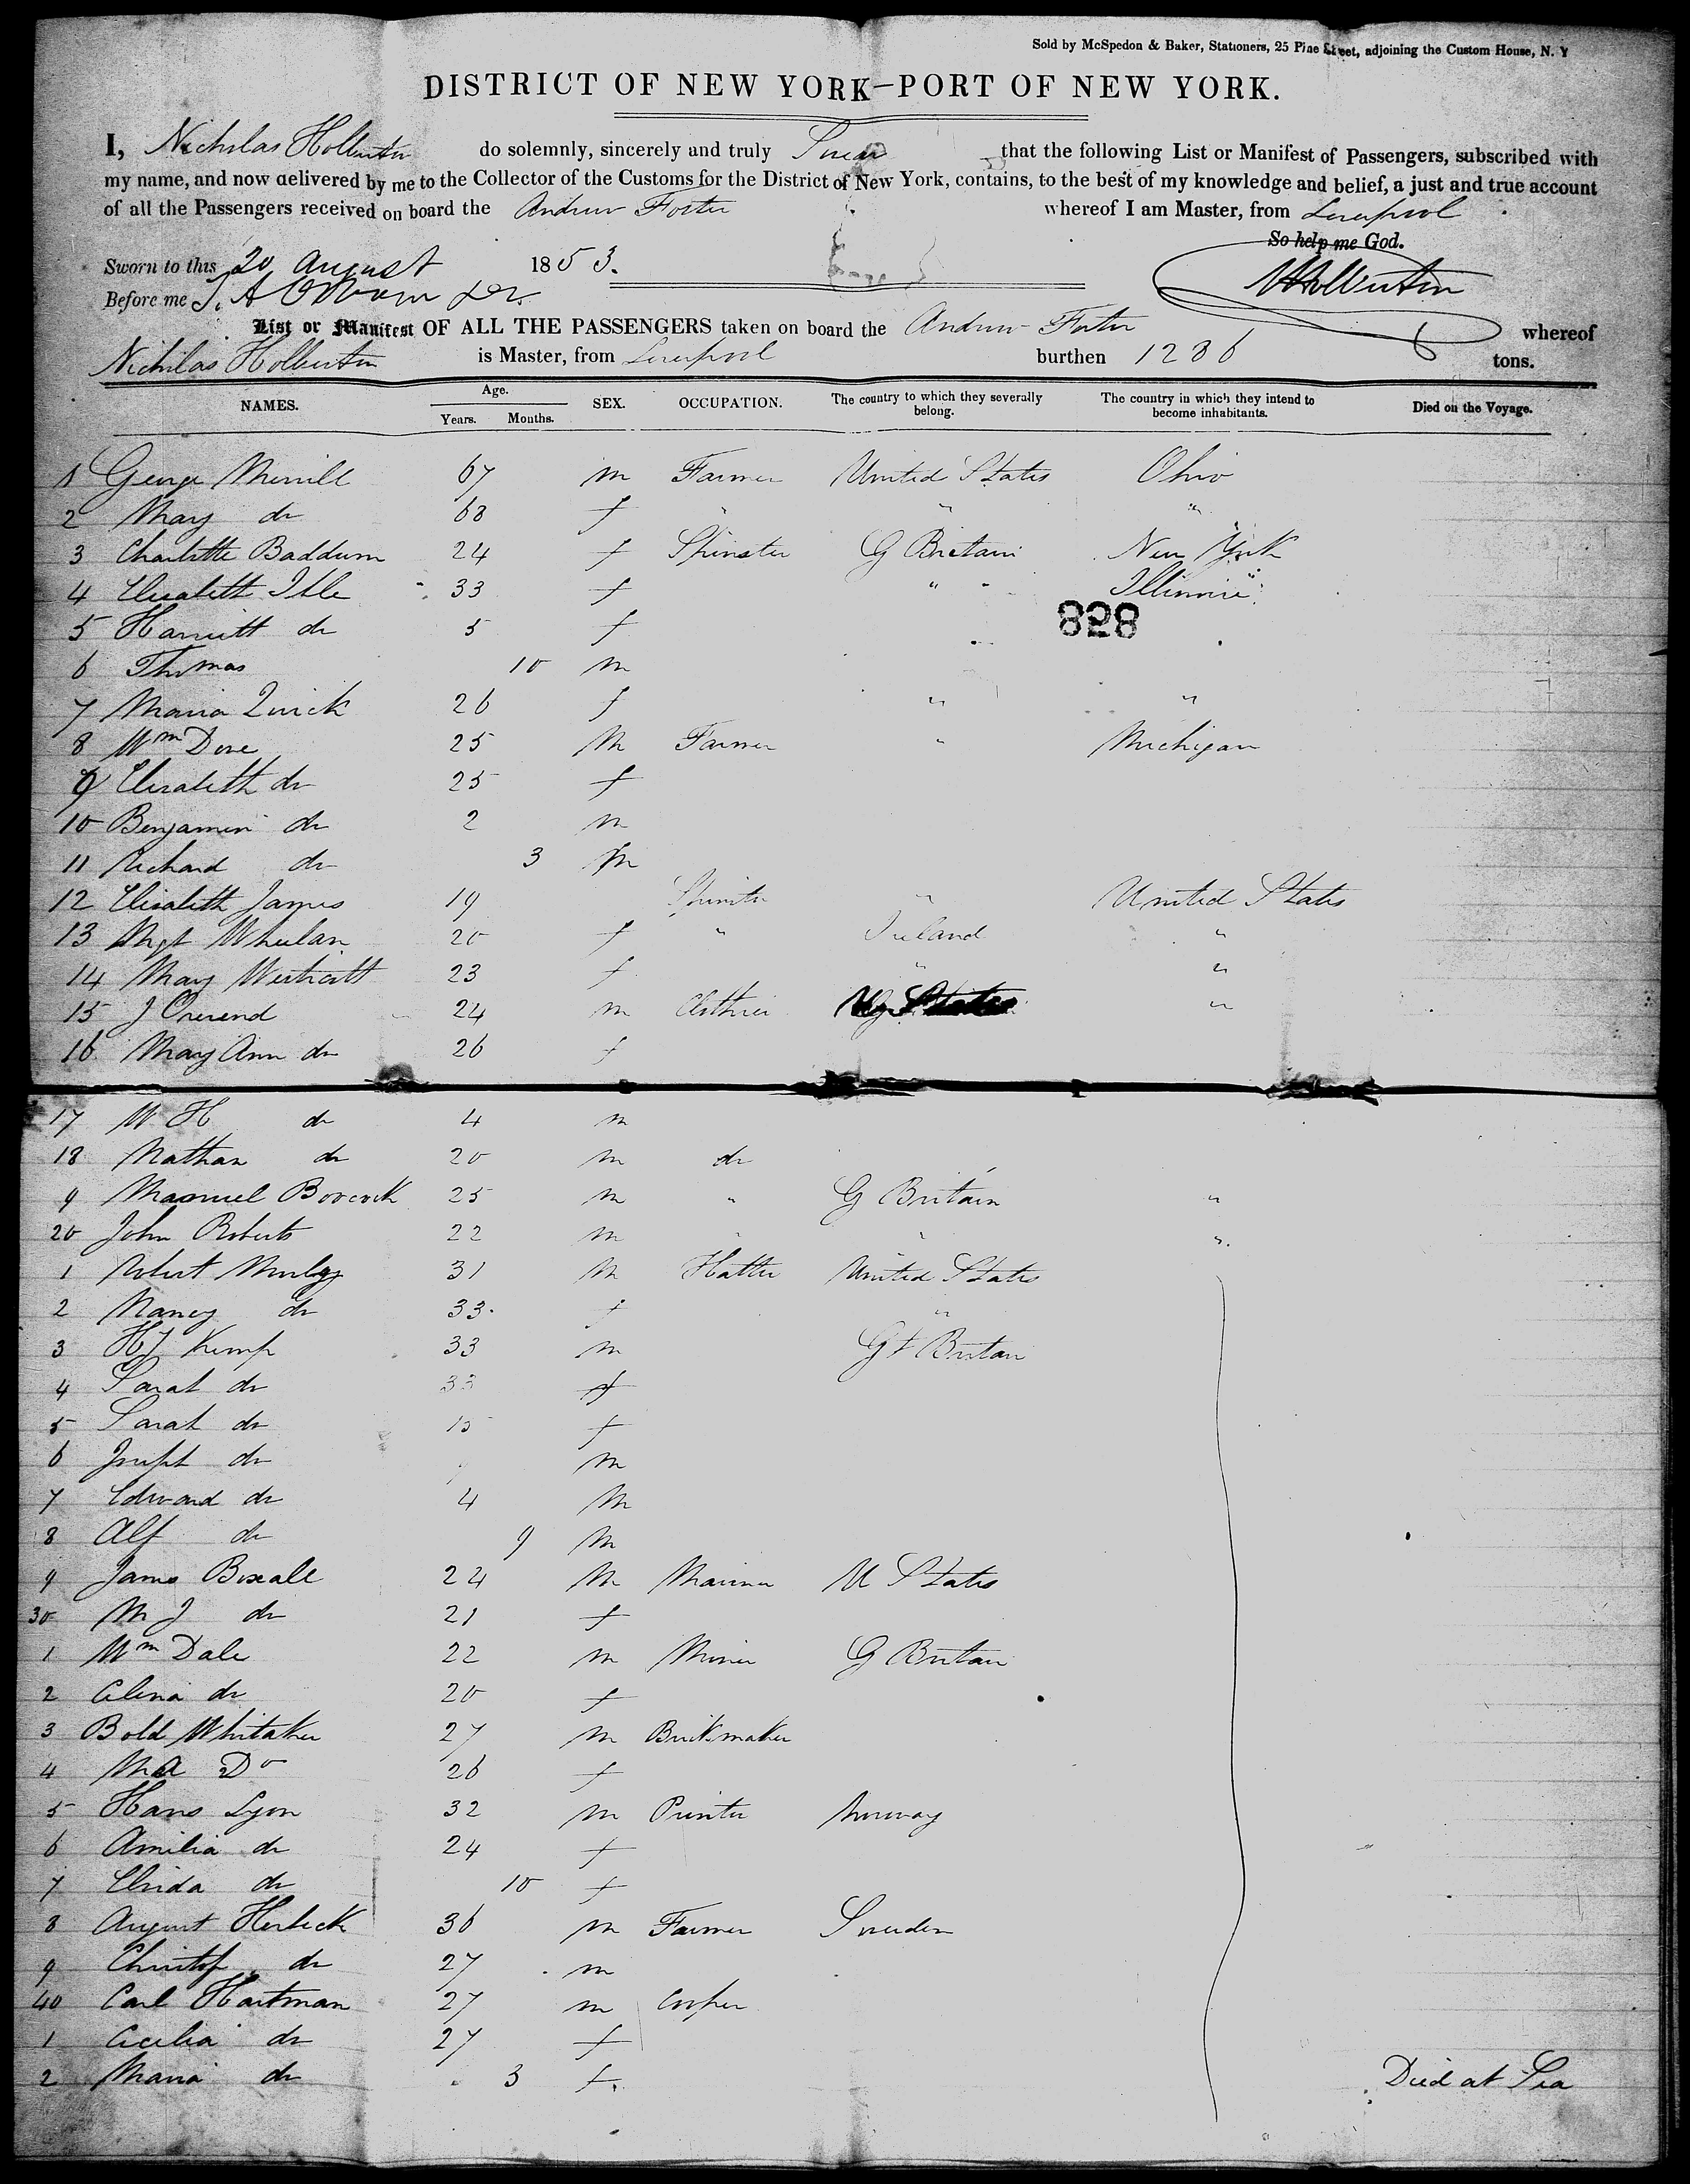 Sold by McSpedon & Baker, Stationers, 25 Pine Street, adjoining the Custom House, N. Y
DISTRICT OF NEW YORK—PORT OF NEW YORK.
I, Nicholas Holberton do solemnly, sincerely and truly Swear that the following List or Manifest of Passengers, subscribed with
my name, and now delivered by me to the Collector of the Customs for the District of New York, contains, to the best of my knowledge and belief, a just and true account
of all the Passengers received on board the Andrew Foster whereof I am Master, from Liverpool
So help me God.
Sworn to this 20 August 1853.
Before me
N Holberton
List or Manifest OF ALL THE PASSENGERS taken on board the Andrew Foster whereof
Nicholas Holberton is Master, from Liverpool burthen 1286 tons.
NAMES. Age. Years. Months. SEX. OCCUPATION. The country to which they severally belong. The country in which they intend to become inhabitants. Died on the Voyage.
1 George Merrill 67 m Farmer United States Ohio
2 Mary do 68 f " " "
3 Charlotte 24 f Spinster G Britain New York
4 Elizabeth 33 f " " Illinois
828
5 Harriett do 5 f
6 Thomas 10 m
7 Maria Quick 26 f " "
8 Wm Dove 25 m Farmer " Michigan
9 Elizabeth do 25 f
10 Benjamin do 2 m
11 Richard do 3 m
12 Elizabeth James 19 Spinster " United States
13 Mgt Wheelan 20 f " Ireland "
14 Mary Westcott 23 f " "
15 J Overend 24 m Clothier "
16 Mary Ann do 26 f
17 W H do 4 m
18 Nathan do 20 m do
9 25 m " G Britain "
20 John Roberts 22 m " " "
1 Robert 31 m Hatter United States
2 Nancy do 33 f "
3 Kemp 33 m Gt Britain
4 Sarah do 33 f
5 Sarah do f
6 Joseph do m
7 Edward do 4 m
8 Alf do 9 m
9 James 24 m Mariner U States
30 M J do 21 f
1 Wm Dale 22 m Miner G Britain
2 do 20 f
3 Bold Whitaker 27 m Brickmaker
4 M A Do 26 f
5 Hans Lyon 32 m Printer Norway
6 Amilia do 24 f
7 do 10 f
8 August 36 m Farmer Sweden
9 Christof do 27 m
40 Carl Hartman 27 m Cooper
1 Cecilia do 27 f
2 Maria do 3 f Died at Sea